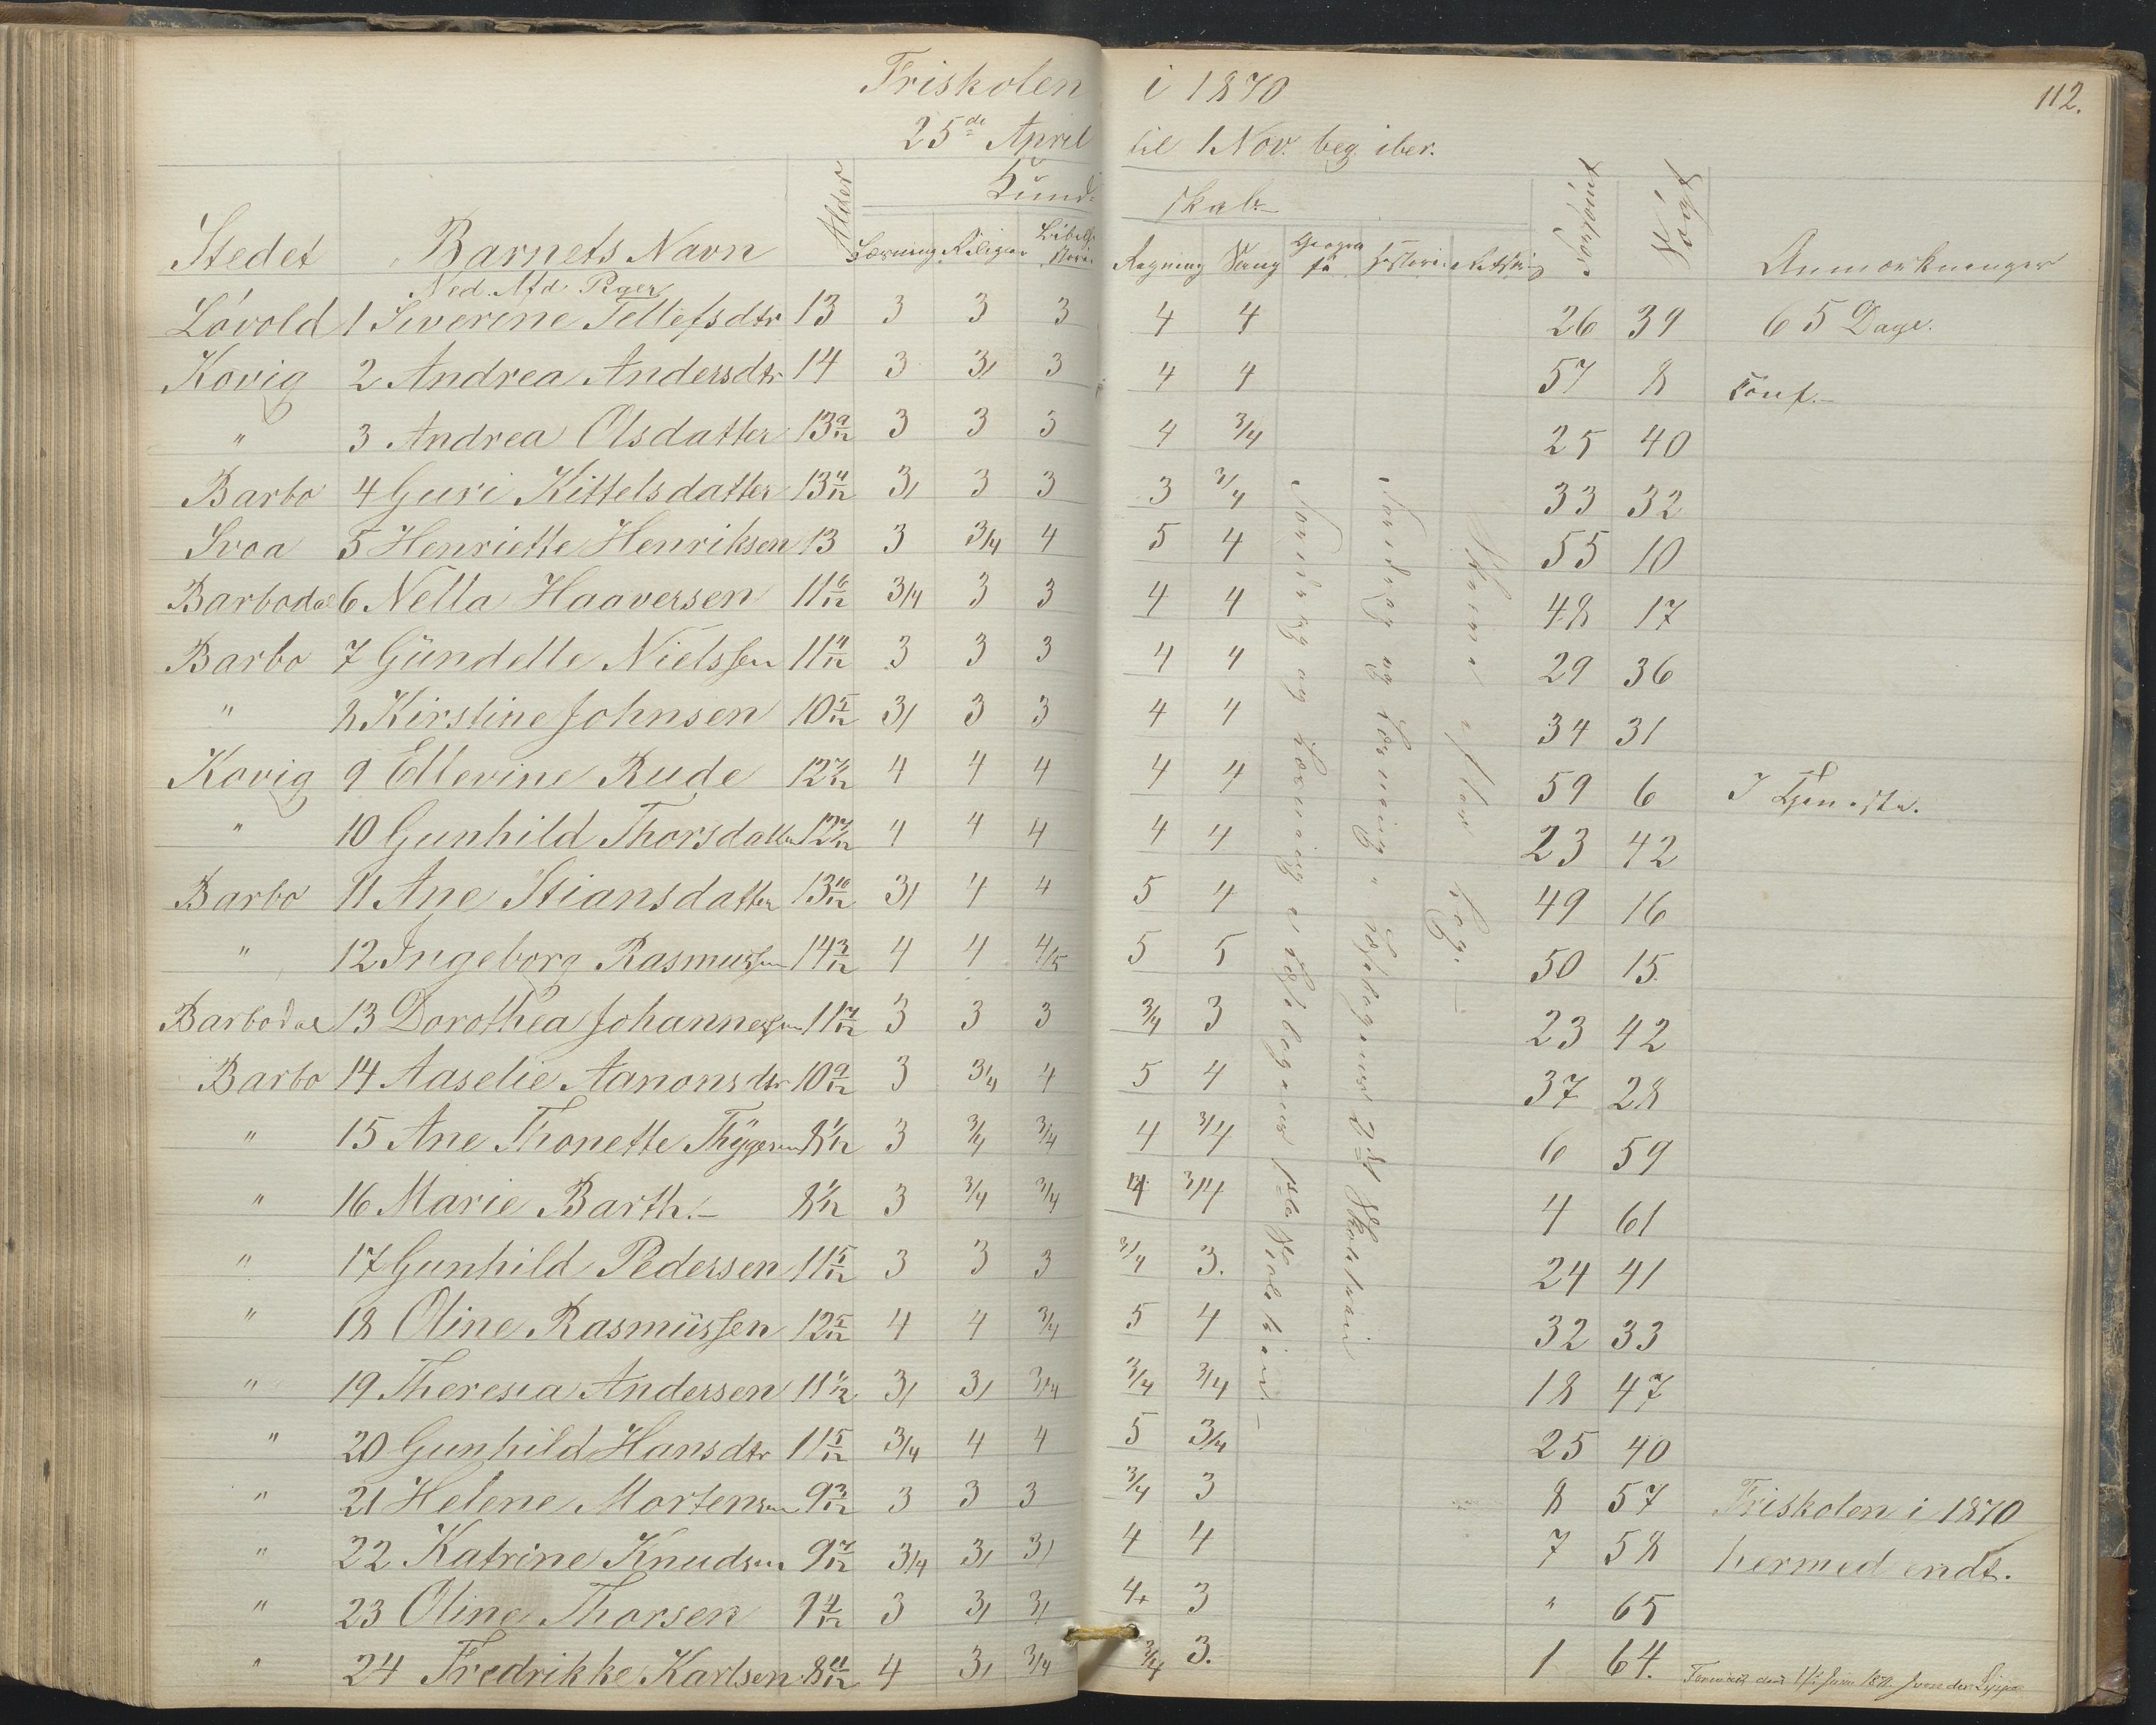 Friskolen i 1870
112.
25de April til 1 Nov. beg. iber.
Kund- skab.
Stedet Barnets Navn Alder Læsning Religion Regning Sang Geografi Historie Forsømt Søgt Anmærkninger
Ned. Afd. Piger
Løvold 1 Siverine Tellefsdtr 13 3 3 3 4 4 26 39 65 Dage.
Kovig 2 Andrea Andersdtr 14 3 3/ 3 4 4 57 8 conf.
" 3 Andrea Olsdatter 13 9/12 3 3 3 4 3/4 25 40
Barbo 4 Guri Kittelsdatter 13 11/12 3/ 3 3 3 3/4 33 32
Svoa 5 Henriette Henriksen 13 3 3/4 4 5 4 55 10
Barbodal 6 Nella Haaversen 11 6/12 3/4 3 3 4 4 48 17
Barbo 7 Gündelle Nielssen 11 4/12 3 3 3 4 4 29 36
" 8 Kirstine Johnsen 10 5/12 3/ 3 3 4 4 34 31
Kovig 9 Ellevine Rude 12 7/12 4 4 4 4 4 59 6 I Tjeneste.
" 10 Gunhild Thorsdatter 12 7/12 4 4 4 4 4 23 42
Barbo 11 Ane Stiansdatter 13 10/12 3/ 4 4 5 4 49 16
" 12 Ingeborg Rasmussen 14 3/12 4 4 4/5 5 5 50 15
Barbodal 13 Dorothea Johannessen 11 7/12 3 3 3 3/4 3 23 42
Barbo 14 Aaselie Aanonsdtr 10 9/12 3 3/4 4 5 4 37 28
" 15 Ane Thonette Thygesen 8 1/12 3 3/4 3/4 4 3/4 6 59
" 16 Marie Barth.- 8 1/12 3 3/4 3/4 4 3/4 4 61
" 17 Gunhild Pedersen 11 5/12 3 3 3 3/4 3. 24 41
" 18 Oline Rasmüssen 12 5/12 4 4 3/4 5 4 32 33
" 19 Theresia Andersen 11 6/12 3/ 3/ 3/4 3/4 3/4 18 47
" 20 Gunhild Hansdtr 11 5/12 3/4 4 4 5 3/4 25 40
" 21 Helene Mortensen 9 3/12 3 3 3 3/4 3 8 57 Friskolen i 1870
" 22 Katrine Knudsen 9 7/12 3/4 3/ 3/ 4 4 7 58 hermed endt.
" 23 Oline Thorsen 9 4/12 3 3/ 3/ 4+ 3 " 65
" 24 Fredrikke Karlsen 8 11/12 4 3/ 3/4 3/4 3. 1 64.
og Læsning i Læsebogens 1ste
og Læsning i Læsebogens 2det
Skrive efter Bog.